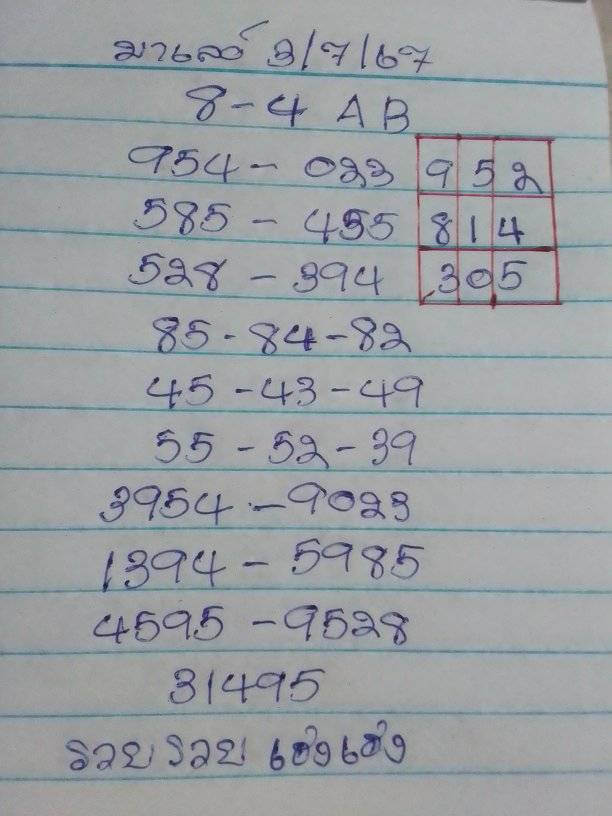 มาเลย์ 3/7/67
8-4 AB
954 - 023
585 - 455
528 - 394
952
814
305
85 - 84 - 82
45 - 43 - 49
55 - 52 - 39
3954 - 9023
1394 - 5985
4595 - 9528
31495
รวย รวย เฮงเฮง